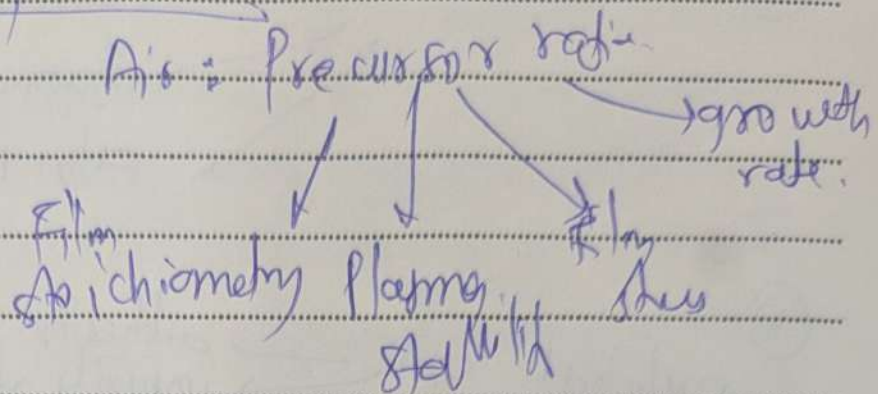 Ar : Precursor ratio
growth
rate.
Film
Stoichiometry Plasma
Stability
Film
Stress